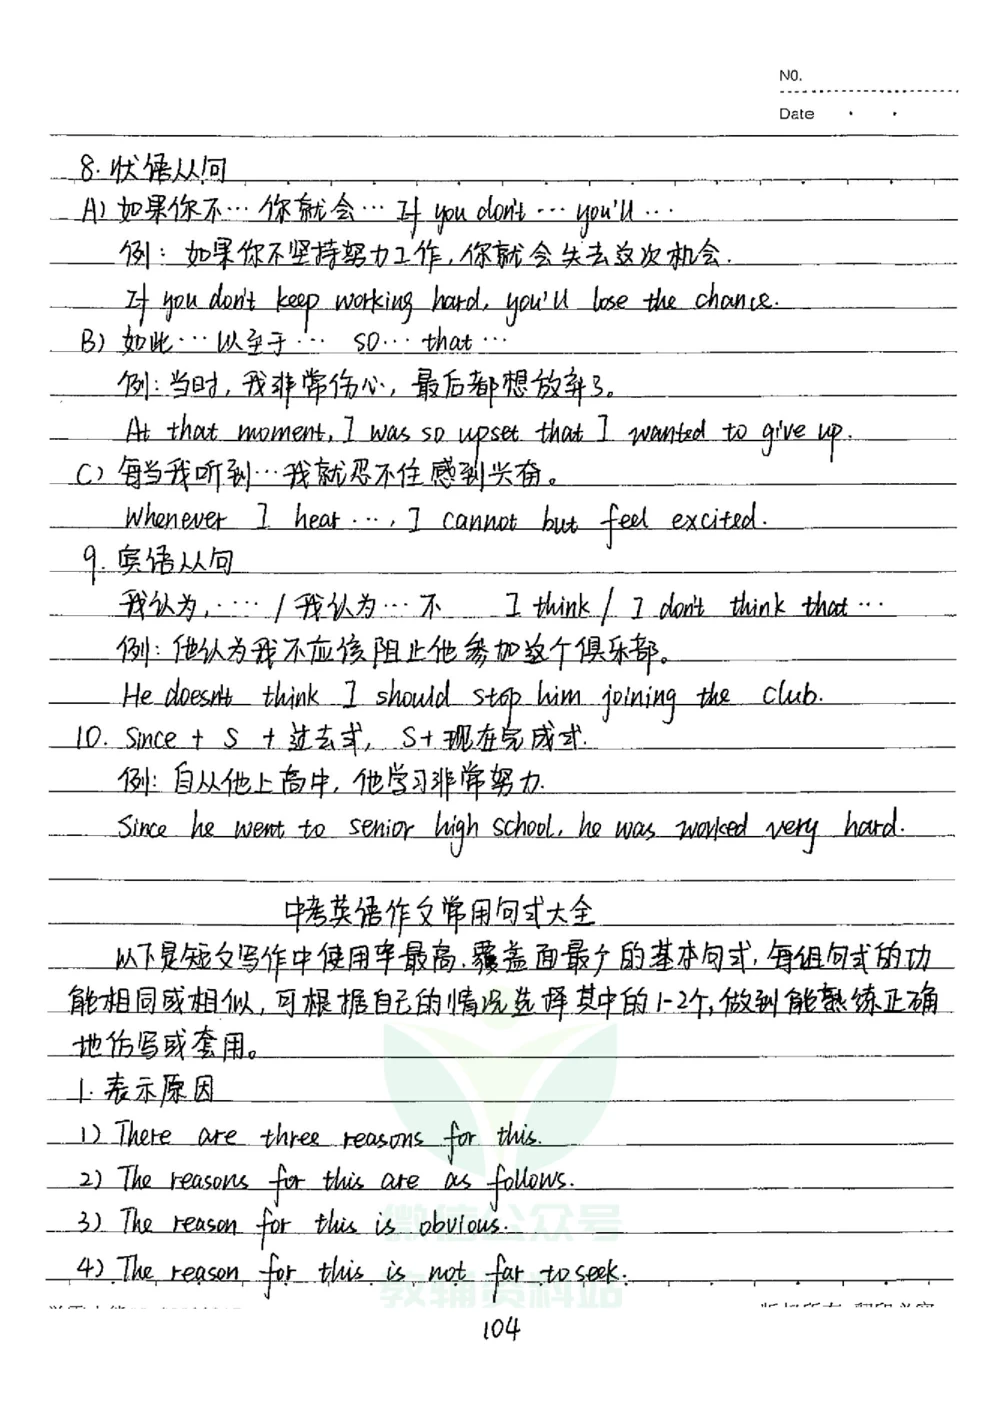 NO.
Date
8. 状语从句
A) 如果你不… 你就会… If you don't … you'll …
例: 如果你不坚持努力工作, 你就会失去这次机会.
If you don't keep working hard, you'll lose the chance.
B) 如此… 以至于… so… that…
例: 当时, 我非常伤心, 最后都想放弃了。
At that moment, I was so upset that I wanted to give up.
C) 每当我听到…我就忍不住感到兴奋。
Whenever I hear …, I cannot but feel excited.
9. 宾语从句
我认为, …… / 我认为… 不 I think / I don't think that …
例: 他认为我不应该阻止他参加这个俱乐部。
He doesn't think I should stop him joining the club.
10. Since + S + 过去式, S+ 现在完成式.
例: 自从他上高中, 他学习非常努力.
Since he went to senior high school, he was worked very hard.
中考英语作文常用句式大全
以下是短文写作中使用率最高、覆盖面最广的基本句式, 每组句式的功
能相同或相似, 可根据自己的情况选择其中的1-2个, 做到能熟练正确
地仿写或套用。
1. 表示原因
1) There are three reasons for this.
2) The reasons for this are as follows.
3) The reason for this is obvious.
微信公众号
4) The reason for this is not far to seek.
教辅资料站
104